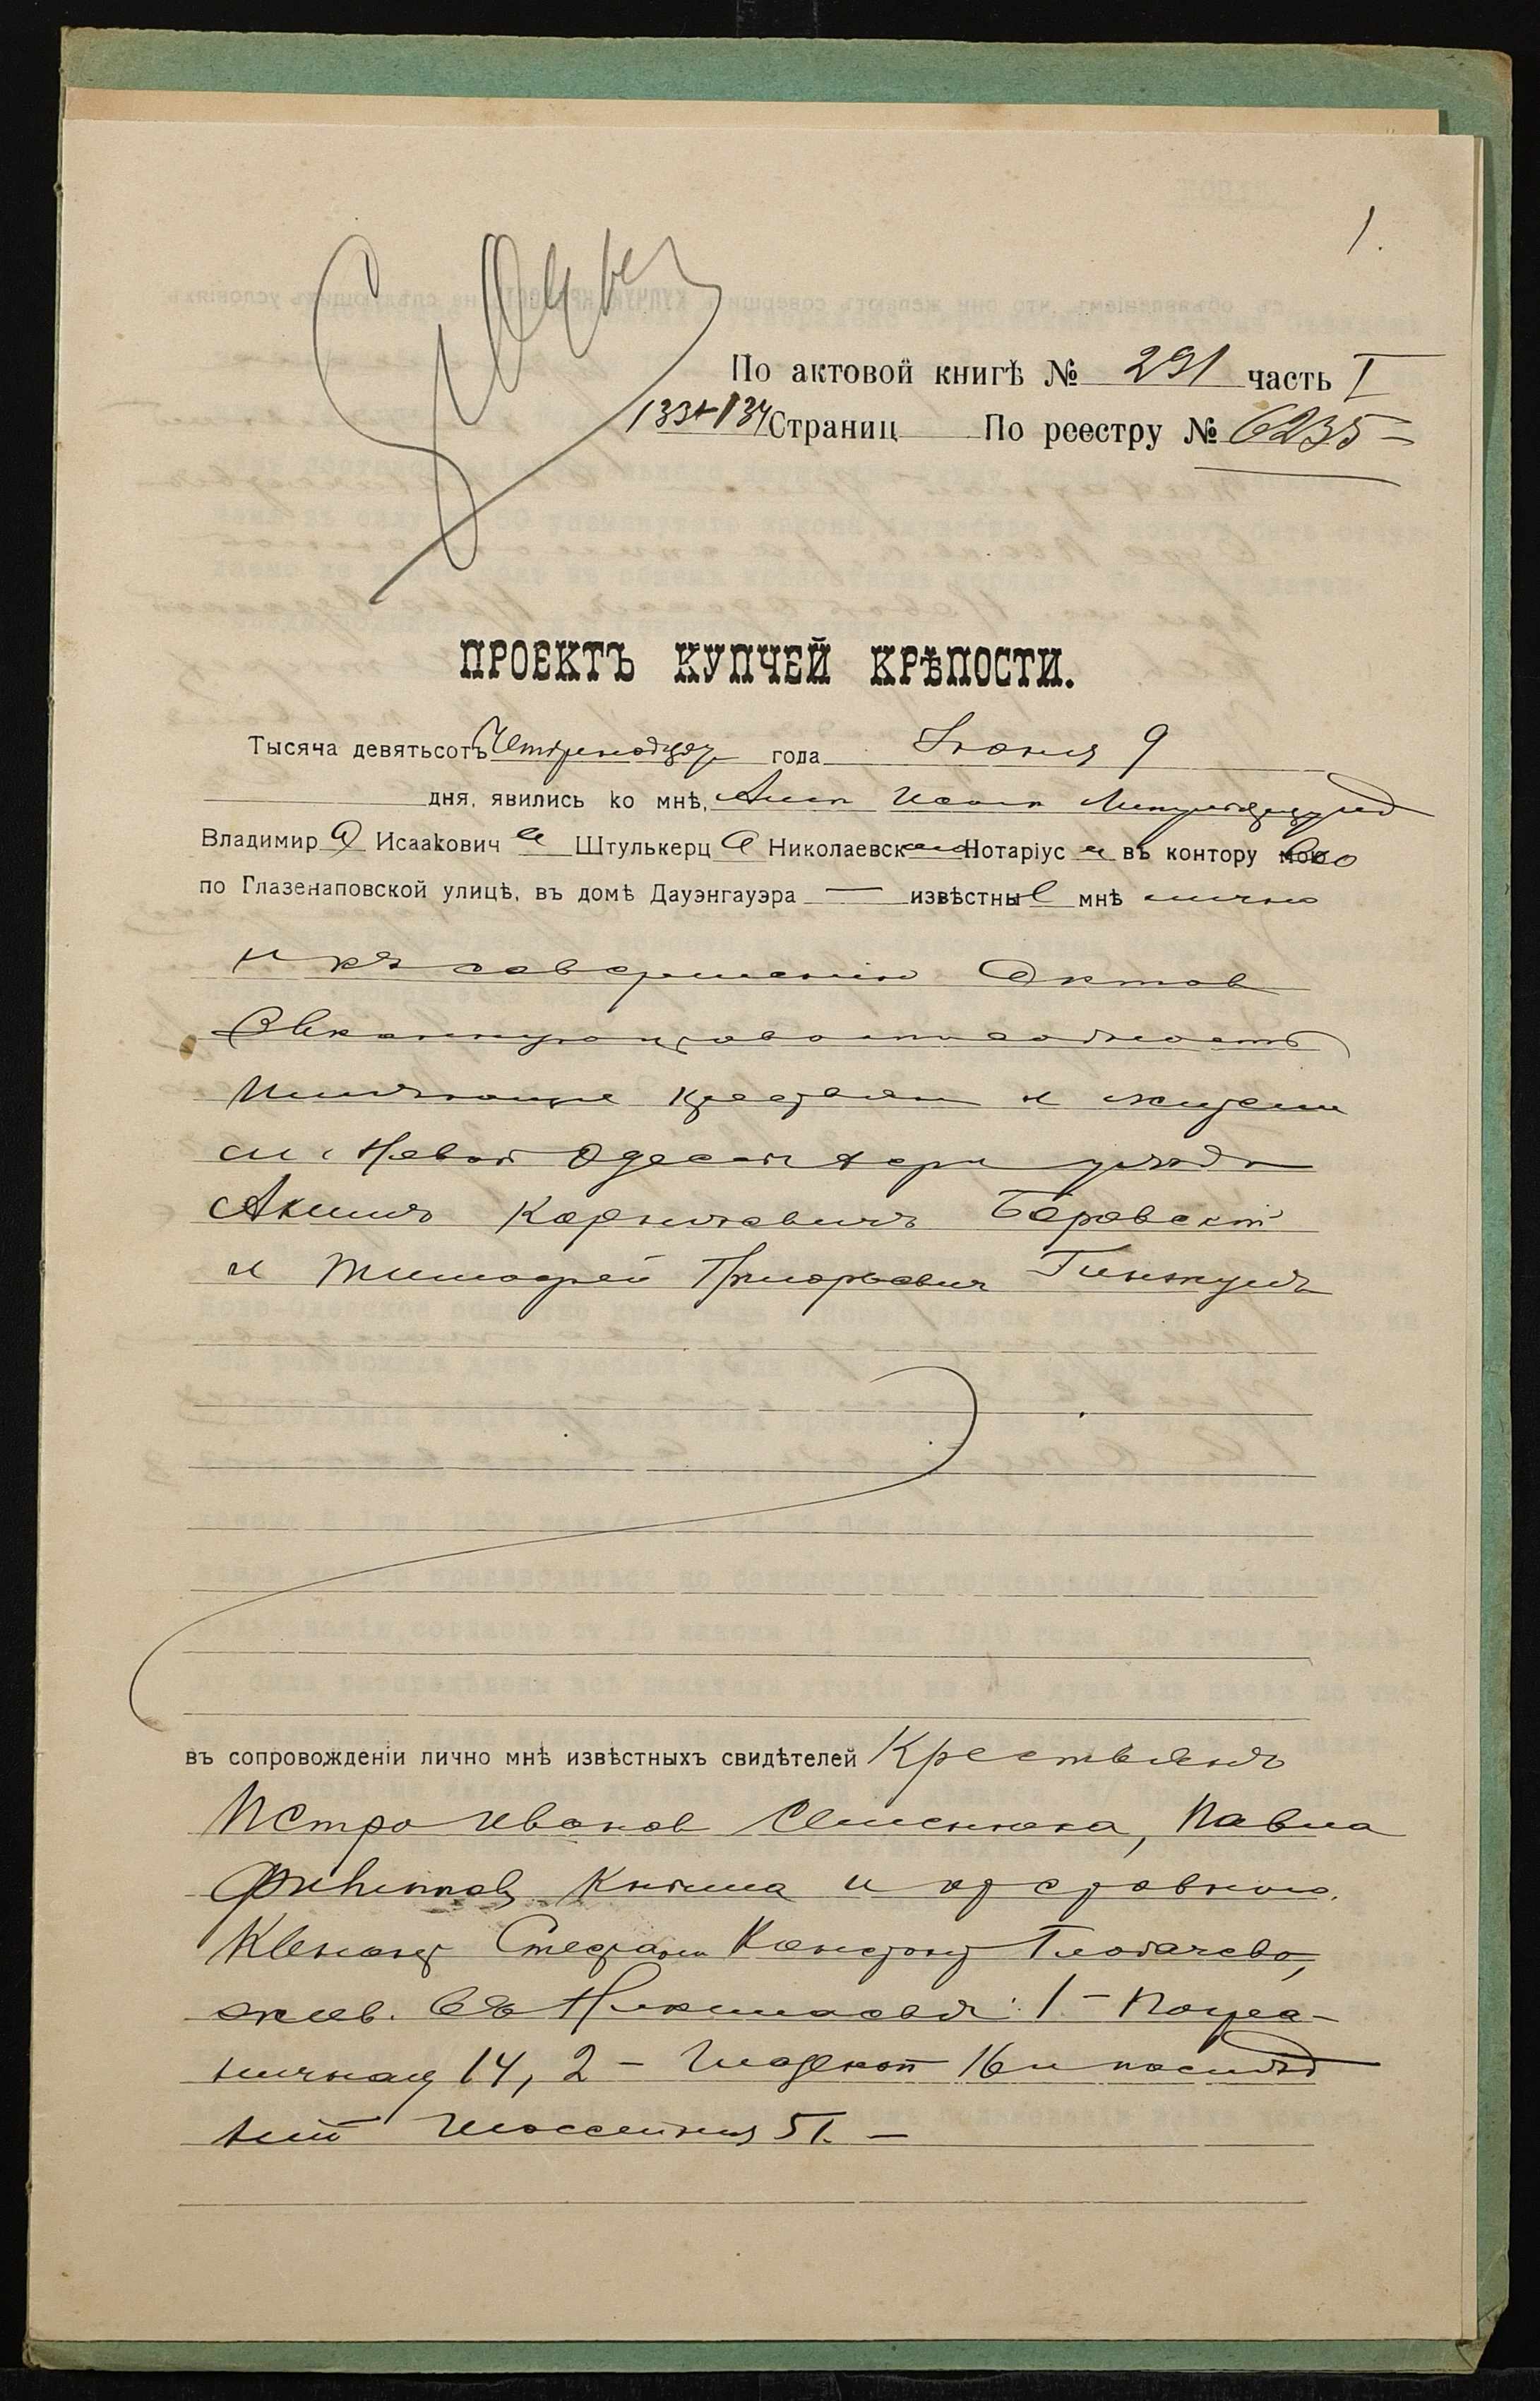 1.
По актовой книгѣ № 291 часть I
133+134 Страниц По реестру № 6235 –
ПРОЕКТЪ КУПЧЕЙ КРѢПОСТИ.
Тысяча девятьсотъ Четырнадцат года Іюня 9
дня, явились ко мнѣ,
Владимир а Исааковича Штулькерца Николаевскаго Нотаріуса въ контору его
по Глазенаповской улицѣ, въ домѣ Дауэнгауэра — извѣстные мнѣ лично
и къ совершенію актов
законную правоспособность
имѣющіе крестьяне и жители
м. Новой Одессы Херс уѣзда
Аким Корнѣевичъ Боровскій
и Тимофей Григорьевич Гинжулъ
въ сопровожденіи лично мнѣ извѣстныхъ свидѣтелей Крестьянъ
Петра Иванов Семенюка, Павла
Филиппов и отставного
Стефана Глобачева,
жив. въ Николаевѣ: 1 – Погра-
ничная 14, 2 – 16 и послѣд
ній Шоссейная 51. –